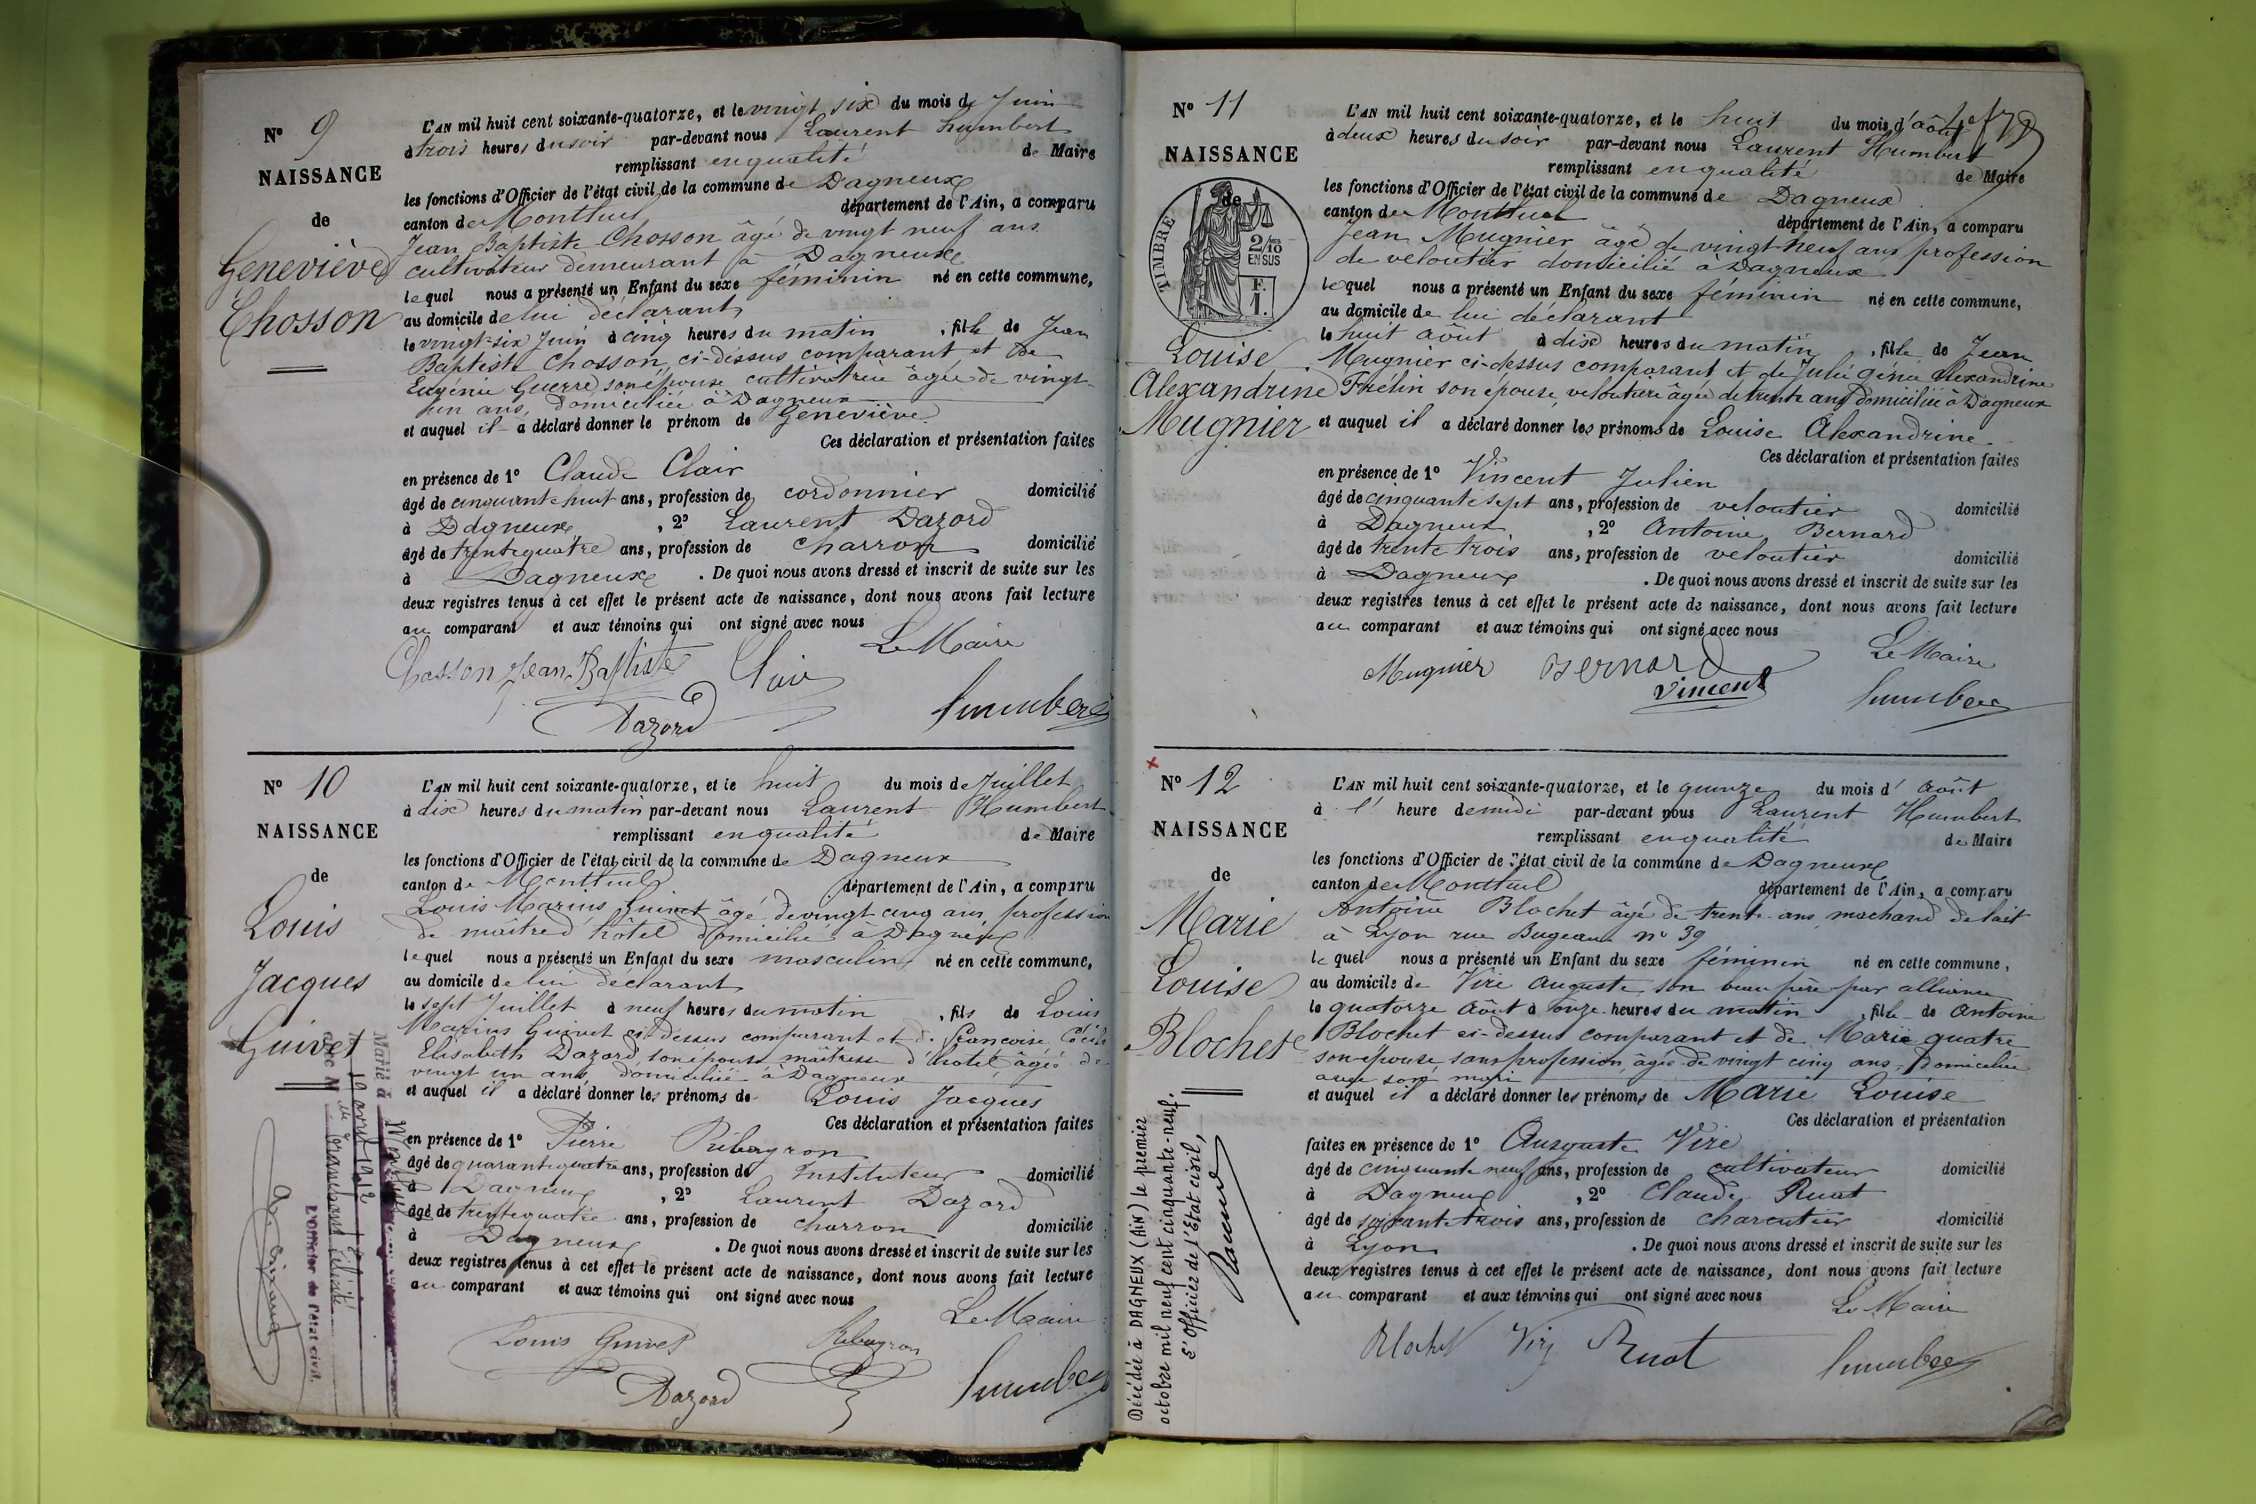 N° 9
NAISSANCE
de
Geneviève
Chosson
L'AN mil huit cent soixante-quatorze, et le vingt six du mois de Juin
à trois heures du soir par-devant nous Laurent Humbert
remplissant en qualité de Maire
les fonctions d'Officier de l'état civil de la commune de Dagneux
canton de Montluel département de l'Ain, a comparu
Jean Baptiste Chosson âgé de vingt neuf ans
cultivateur demeurant à Dagneux
lequel nous a présenté un Enfant du sexe féminin né en cette commune,
au domicile de lui déclarant
le vingt-six Juin à cinq heures du matin , fille de Jean
Baptiste Chosson, ci-dessus comparant et de
Eugénie Guerre son épouse cultivatrice âgée de vingt-
un ans, domiciliée à Dagneux
et auquel il a déclaré donner le prénom de Geneviève
Ces déclaration et présentation faites
en présence de 1° Claude Clair
âgé de cinquante huit ans, profession de cordonnier domicilié
à Dagneux , 2° Laurent Dazord
âgé de trente quatre ans, profession de charron domicilié
à Dagneux . De quoi nous avons dressé et inscrit de suite sur les
deux registres tenus à cet effet le présent acte de naissance, dont nous avons fait lecture
au comparant et aux témoins qui ont signé avec nous
Le Maire
Chosson Jean Baptiste Clair
Dazord Humbert
N° 10
NAISSANCE
de
Louis
Jacques
Guivet
L'AN mil huit cent soixante-quatorze, et le huit du mois de Juillet
à dix heures du matin par-devant nous Laurent Humbert
remplissant en qualité de Maire
les fonctions d'Officier de l'état civil de la commune de Dagneux
canton de Montluel département de l'Ain, a comparu
Louis Marius Guivet âgé de vingt cinq ans, profession
de maître d'hôtel domicilié à Dagneux
lequel nous a présenté un Enfant du sexe masculin né en cette commune,
au domicile de lui déclarant
le sept Juillet à neuf heures du matin , fils de Louis
Marius Guivet ci-dessus comparant et de Françoise
Elisabeth Dazord, son épouse maîtresse d'hôtel âgée de
vingt un ans domiciliée à Dagneux
et auquel il a déclaré donner les prénoms de Louis Jacques
Ces déclaration et présentation faites
en présence de 1° Pierre Ribeyron
âgé de quarante quatre ans, profession de Instituteur domicilié
à Dagneux , 2° Laurent Dazord
âgé de trente quatre ans, profession de charron domicilié
à Dagneux . De quoi nous avons dressé et inscrit de suite sur les
deux registres tenus à cet effet le présent acte de naissance, dont nous avons fait lecture
au comparant et aux témoins qui ont signé avec nous
Le Maire
Louis Guivet Ribeyron
Dazord Humbert
Marié à
19 avril 1912
avec M
L'Officier de l'état civil,
N° 11
NAISSANCE
de
TIMBRE
2/10
EN SUS
F.
1.
Louise
Alexandrine
Mugnier
L'AN mil huit cent soixante-quatorze, et le huit du mois d'août
à deux heures du soir par-devant nous Laurent Humbert
remplissant en qualité de Maire
les fonctions d'Officier de l'état civil de la commune de Dagneux
canton de Montluel département de l'Ain, a comparu
Jean Mugnier âgé de vingt-neuf ans profession
de veloutier domicilié à Dagneux
lequel nous a présenté un Enfant du sexe féminin né en cette commune,
au domicile de lui déclarant
le huit août à dix heures du matin , fille de Jean
Mugnier ci-dessus comparant et de Alexandrine
Frelin son épouse, veloutière âgée de trente ans domiciliée à Dagneux
et auquel il a déclaré donner les prénoms de Louise Alexandrine
Ces déclaration et présentation faites
en présence de 1° Vincent Julien
âgé de cinquante sept ans, profession de veloutier domicilié
à Dagneux , 2° Antoine Bernard
âgé de trente trois ans, profession de veloutier domicilié
à Dagneux . De quoi nous avons dressé et inscrit de suite sur les
deux registres tenus à cet effet le présent acte de naissance, dont nous avons fait lecture
au comparant et aux témoins qui ont signé avec nous
Le Maire
Mugnier Bernard
Vincent Humbert
N° 12
NAISSANCE
de
Marie
Louise
Blochet
L'AN mil huit cent soixante-quatorze, et le quinze du mois d'août
à l'heure de midi par-devant nous Laurent Humbert
remplissant en qualité de Maire
les fonctions d'Officier de l'état civil de la commune de Dagneux
canton de Montluel département de l'Ain, a comparu
Antoine Blochet âgé de trente ans machand de lait
à Lyon rue Bugeaud n° 39
lequel nous a présenté un Enfant du sexe féminin né en cette commune,
au domicile de Viré Auguste, son beau père par alliance
le quatorze Août à onze heures du matin , fille de Antoine
Blochet ci-dessus comparant et de Marie quatre
son épouse sans profession, âgée de vingt cinq ans, domiciliée
avec son mari
et auquel il a déclaré donner les prénoms de Marie Louise
Ces déclaration et présentation
faites en présence de 1° Auguste Viré
âgé de cinquante neuf ans, profession de cultivateur domicilié
à Dagneux , 2° Claude Ruat
âgé de soixante trois ans, profession de charcutier domicilié
à Lyon . De quoi nous avons dressé et inscrit de suite sur les
deux registres tenus à cet effet le présent acte de naissance, dont nous avons fait lecture
au comparant et aux témoins qui ont signé avec nous
Le Maire
Blochet Viré Ruat
Humbert
Décédée à DAGNEUX (Ain) le premier
octobre mil neuf cent cinquante-neuf.
L'Officier de l'Etat civil,